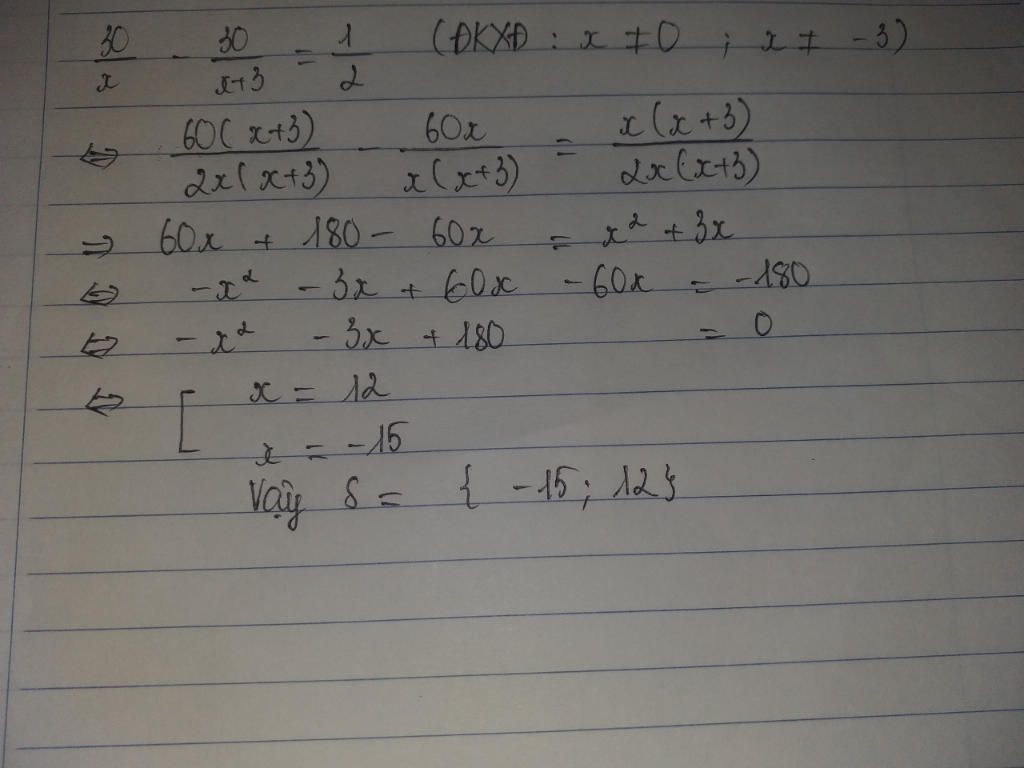 30/x - 30/x+3 = 1/2 (ĐKXĐ : x ≠ 0 ; x ≠ -3)
⇔ 60(x+3)/2x(x+3) - 60x/x(x+3) = x(x+3)/2x(x+3)
⇒ 60x + 180 - 60x = x² + 3x
⇔ -x² - 3x + 60x - 60x = -180
⇔ -x² - 3x + 180 = 0
⇔ [ x = 12
x = -15
Vậy S = { -15; 12}